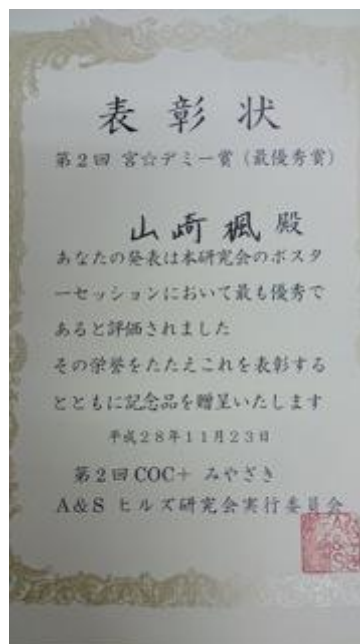 表彰状
第2回 宮☆デミー賞（最優秀賞）
山崎 楓 殿
あなたの発表は本研究会のポスタ
ーセッションにおいて最も優秀で
あると評価されました
その栄誉をたたえこれを表彰する
とともに記念品を贈呈いたします
平成28年11月23日
第2回COC+ みやざき
A&S ヒルズ研究会実行委員会